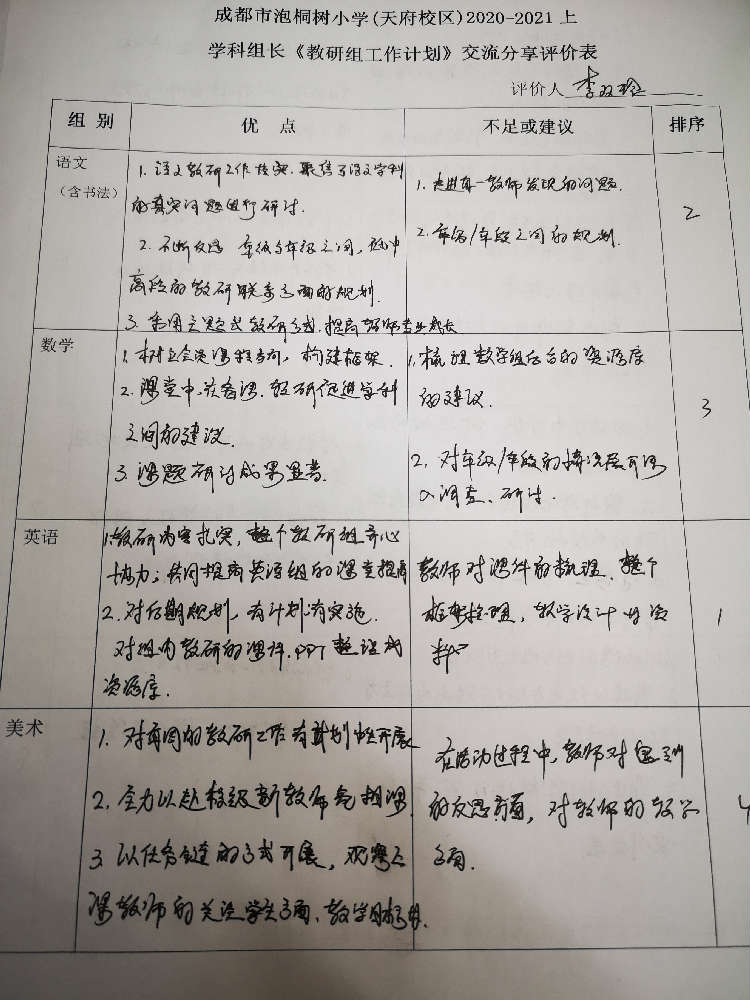 成都市泡桐树小学(天府校区)2020-2021上
学科组长《教研组工作计划》交流分享评价表
评价人 李双
组 别 优 点 不足或建议 排序
语文
(含书法)
1. 语文教研工作扎实,聚焦了语文学科
的真实问题进行研讨.
2. 不断反思 年级与年级之间,低中
高段的教研联系方面的规划.
3. 采用主题式教研方式,提高教师专业成长
1. 走进每一教师发现的问题.
2. 年级/年段之间的规划.
2
数学
1. 树立全见课程方向,构建框架.
2. 课堂中,找备课.教研促进学科
之间的建议.
3. 课题研讨成果显著.
1. 梳理数学组后台的资源库
的建议.
2. 对年级/年段的情况是可深
入调查、研讨.
3
英语
1. 教研内容扎实,整个教研组齐心
协力;共同提高英语组的课堂提高
2. 对后期规划,有计划有实施.
对组内教研的课件.PPT 整理成
资源库.
教师对课件的梳理、整个
框架梳理,教学设计 资
料
1
美术
1. 对每周的教研工作有计划性开展
2. 全力以赴校级新教师亮相课
3. 以任务链的方式开展,观
课教师的关注学生方面、教学目标
在活动过程中,教师对
的反思方面,对教师的教学
方面.
4